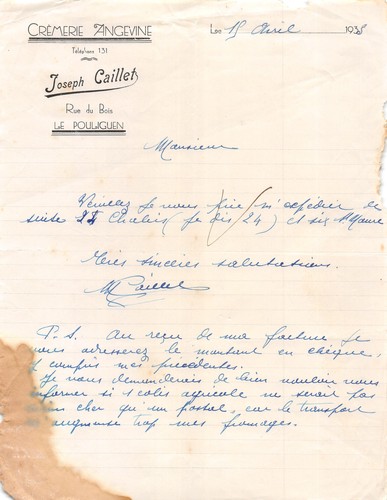 CRÈMERIE ANGEVINE
Téléphone 131
Joseph Caillet
Rue du Bois
LE POULIGUEN
Le 15 Avril 1938
Monsieur
Veuillez je vous prie m'expédier de
suite 24 Chabis (je dis 24) et six St Maure
Mes sincères salutations.
M Caillet
P.S. Au reçu de ma facture je
vous adresserez le montant en chèque,
y compris mes précédentes.
Je vous demanderais de bien vouloir nous
informer si 1 colis agricole ne serait pas
cher qu'un postal, car le transport
augmente trop mes fromages.